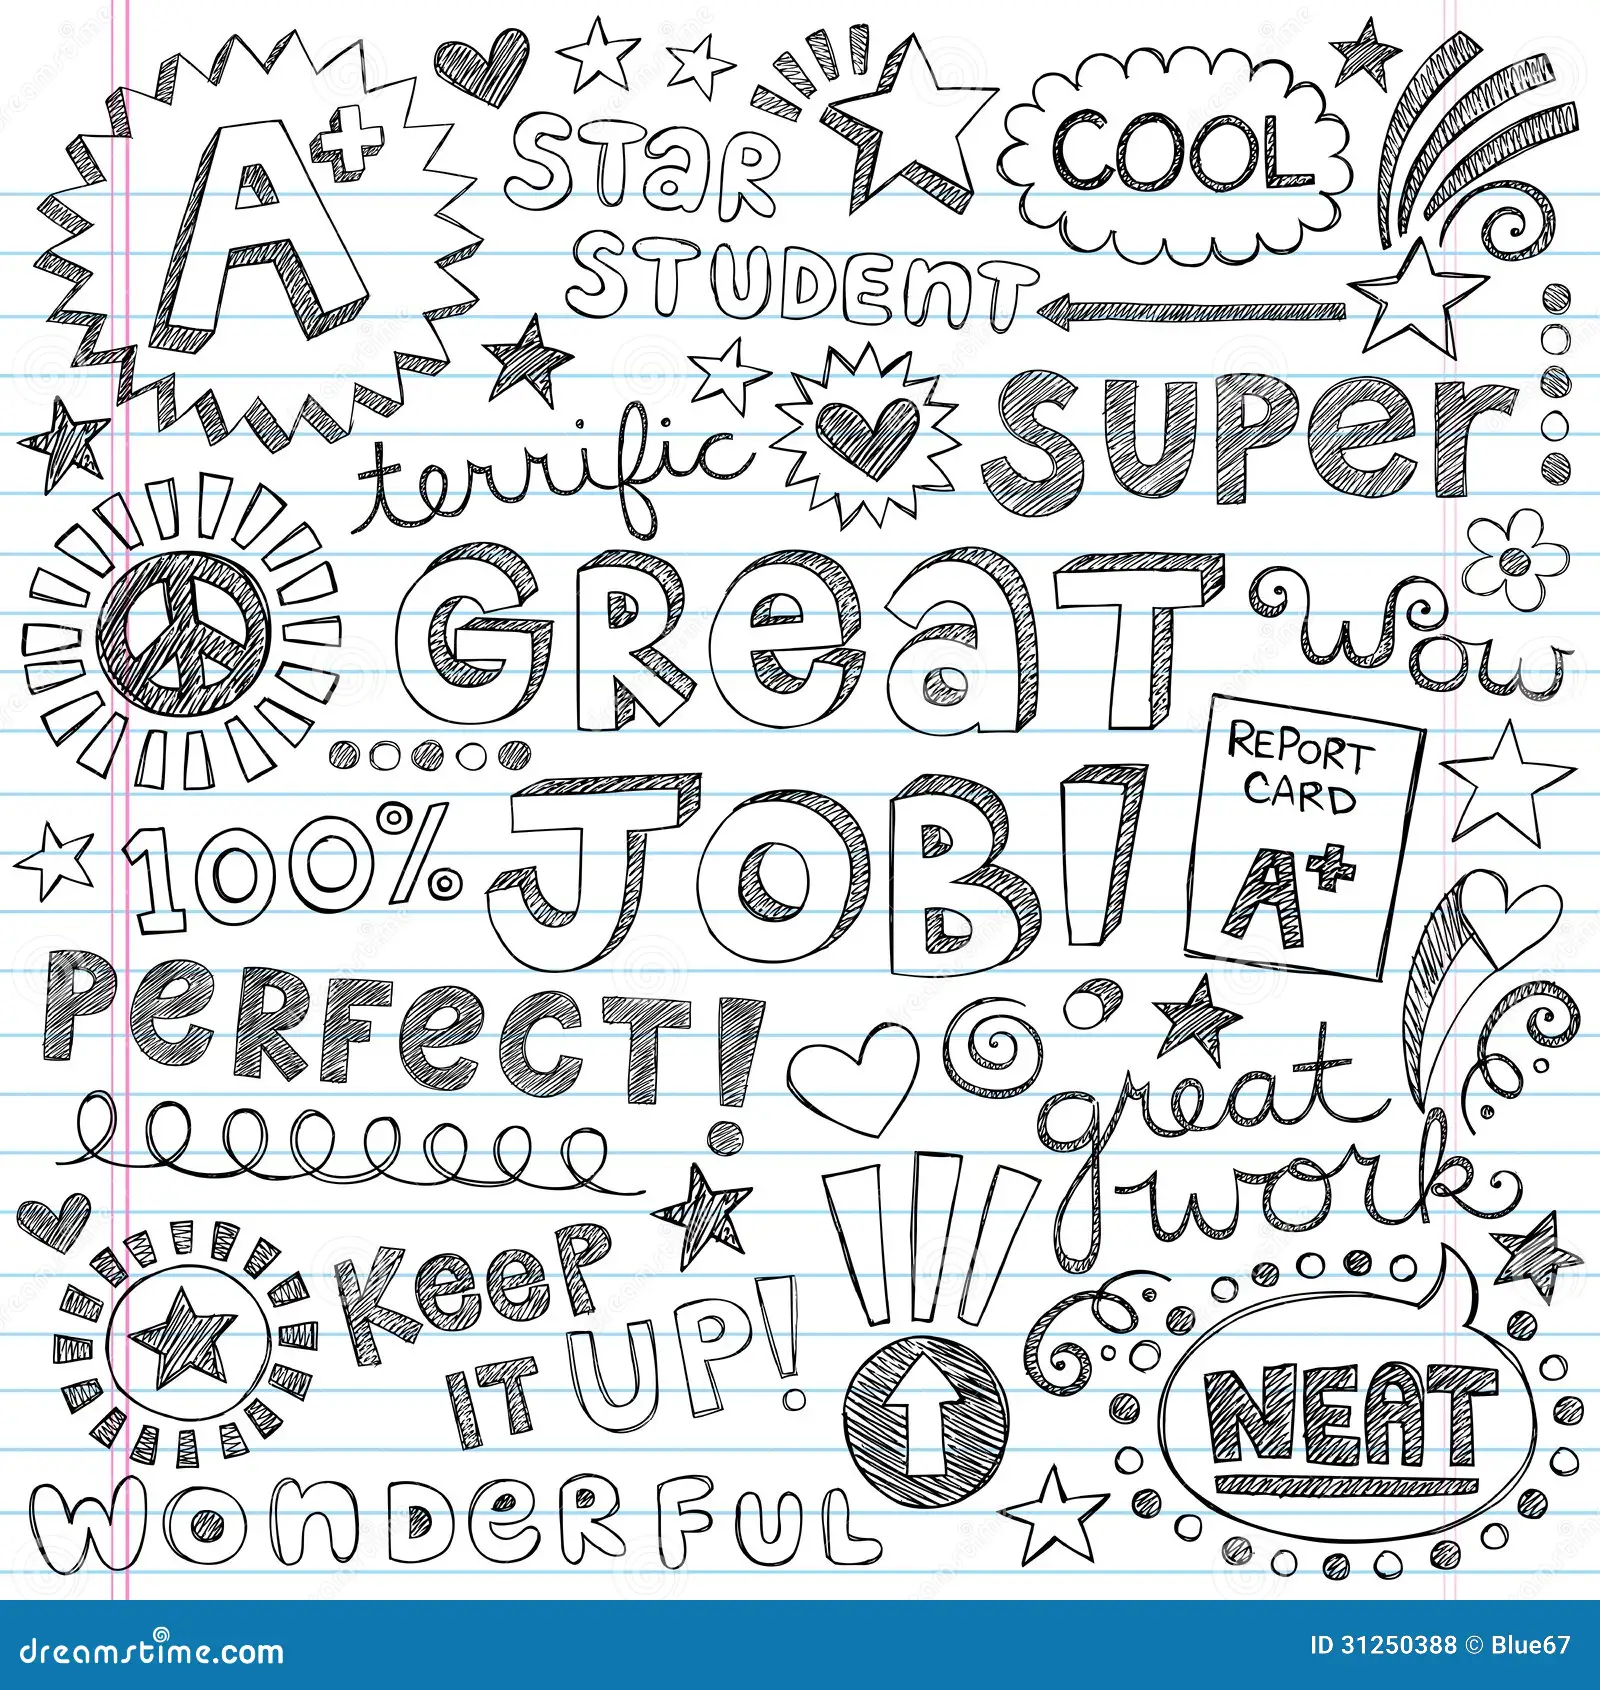 A+
STAR
STUDENT
COOL
terrific
SUPER
GREAT
JOB!
WOW
REPORT
CARD
A+
100%
PERFECT!
great
work
KEEP
IT UP!
NEAT
WONDERFUL
dreamstime.com
ID 31250388 © Blue67